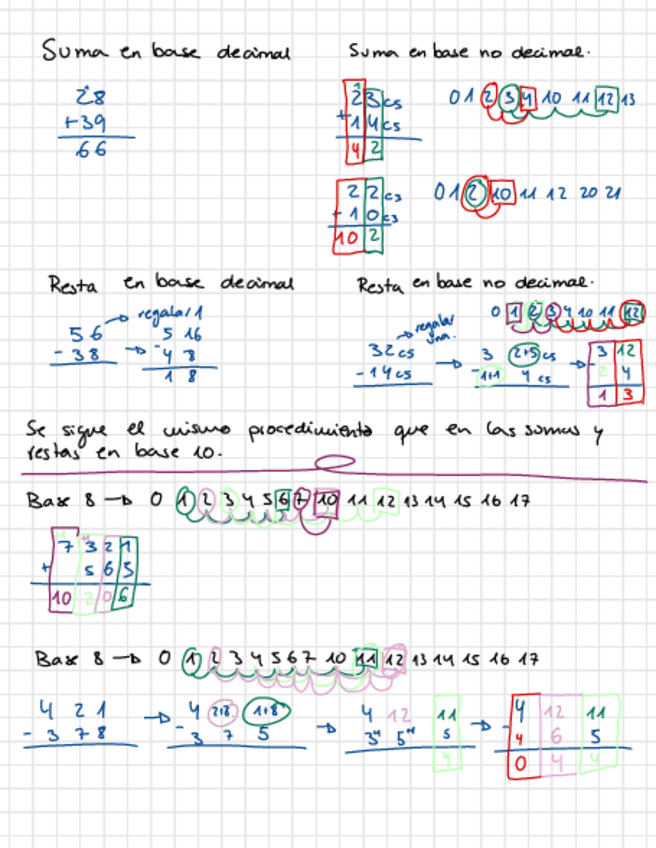 Suma en base decimal
28
+39
66
Suma en base no decimal.
23c5
+14c5
42
0 1 2 3 4 10 11 12 13
22c3
+10c3
10 2
0 1 2 10 11 12 20 21
Resta en base decimal
regalar 1
56
-38
5 16
- 4 8
1 8
Resta en base no decimal.
0 1 2 3 4 10 11 12
regalar una.
32c5
-14c5
3 2+5 c5
- 1+1 4 c5
3 12
- 2 4
1 3
Se sigue el mismo procedimiento que en las sumas y
restas en base 10.
Base 8 → 0 1 2 3 4 5 6 7 10 11 12 13 14 15 16 17
7 3 2 1
+ 5 6 5
10 2 0 6
Base 8 → 0 1 2 3 4 5 6 7 10 11 12 13 14 15 16 17
4 2 1
- 3 7 8
4 2+8 1+8
- 3 7 5
4 12 11
3⁺¹ 5⁺¹ 5
4
4 12 11
- 4 6 5
0 4 4